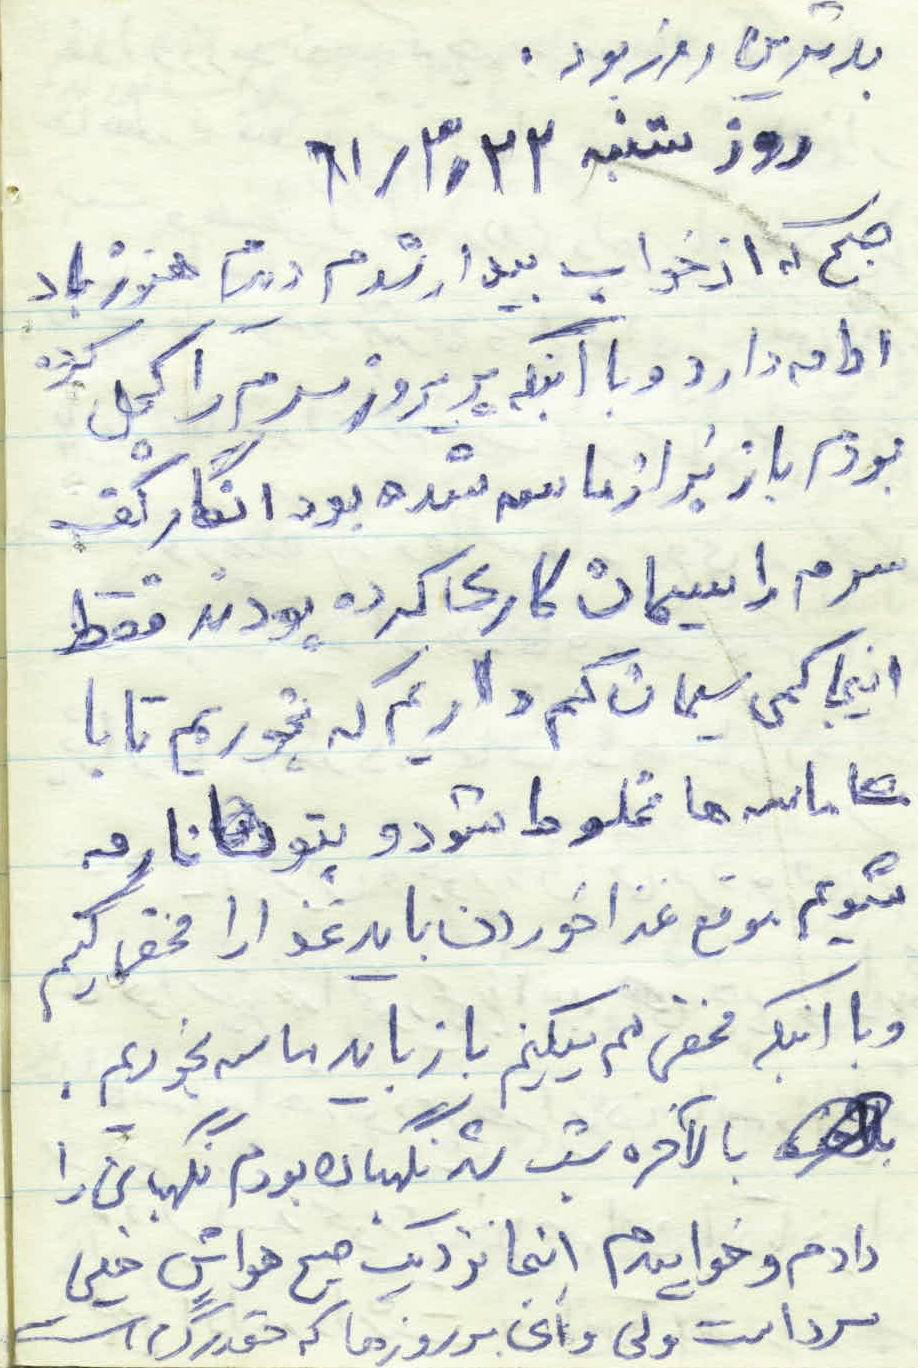 بدترین روز بود .
روز شنبه ۶۱/۳/۲۲
صبح که از خواب بیدار شدم دیدم هنوز باد
ادامه دارد و با آنکه پریروز سرم را کچل کرده
بودم باز پُر از ماسه شده بود انگار کف
سرم را سیمان کاری کرده بودند فقط
اینجا کمی سیمان کم داریم که بخوریم تا با
ماسه ها مخلوط شود و بتون آرمه
شویم موقع غذا خوردن باید غذا را مخفی کنیم
و با اینکه مخفی هم میکنیم باز باید ماسه بخوریم .
بالاخره شب شد نگهبان بودم نگهبانی را
دادم و خوابیدم اینجا نزدیک صبح هوایش خیلی
سرد است ولی وای بر روزها که چقدر گرم است